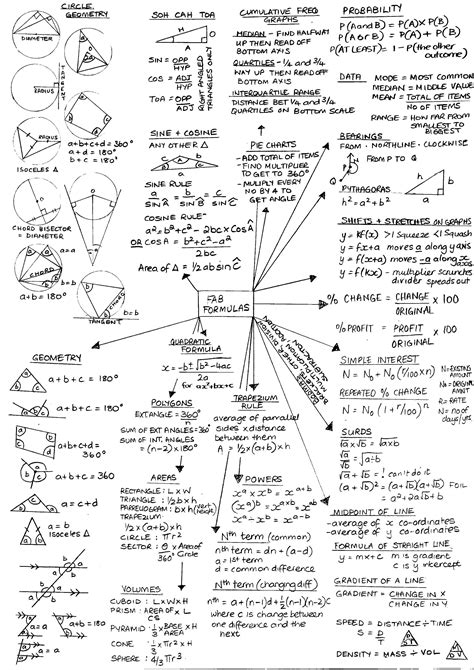 CIRCLE
GEOMETRY
DIAMETER
TANGENT
RADIUS
a+b+c+d = 360°
a+d = 180°
b+c = 180°
RADIUS
ISOCELES Δ
CHORD BISECTOR
= DIAMETER
a=a
b=b
CHORD
a+b = 180°
CHORD
b=b
TANGENT
SOH CAH TOA
H
O
A
SIN = OPP
HYP
COS = ADJ
HYP
TOA = OPP
ADJ
RIGHT ANGLED
TRIANGLES ONLY
SINE + COSINE
ANY OTHER Δ
SINE RULE
a = b = c
SIN Â SIN B̂ SIN Ĉ
COSINE RULE
a² = b² + c² - 2bc × COS Â
OR COS Â = b² + c² - a²
2bc
Area of Δ = 1/2 ab sin Ĉ
CUMULATIVE FREQ
GRAPHS
MEDIAN - FIND HALFWAY
UP THEN READ OFF
BOTTOM AXIS
QUARTILES - 1/4 AND 3/4
WAY UP THEN READ OFF
BOTTOM AXIS
INTERQUARTILE RANGE
DISTANCE BET 1/4 AND 3/4
QUARTILES ON BOTTOM SCALE
PIE CHARTS
- ADD TOTAL OF ITEMS
- FIND MULTIPLIER
TO GET TO 360°
- MULIPLY EVERY
NO BY ↑ TO
GET ANGLE
PROBABILITY
P(A and B) = P(A) × P(B)
P(A or B) = P(A) + P(B)
P(AT LEAST) = 1 - P(the other
outcome)
DATA
MODE = MOST COMMON
MEDIAN = MIDDLE VALUE
MEAN = TOTAL OF ITEMS
NO OF ITEMS
RANGE = HOW FAR FROM
SMALLEST TO
BIGGEST
BEARINGS
FROM · NORTHLINE · CLOCKWISE
FROM P TO Q
PYTHAGORAS
h² = a² + b²
h
b
a
SHIFTS + STRETCHES ON GRAPHS
y = kf(x) >1 Squeeze <1 Squash
y = fx + a moves a along y axis
y = f(x+a) moves -a along x
axis
y = f(kx) - multiplier scrunches
divider spreads out
% CHANGE = CHANGE × 100
ORIGINAL
% PROFIT = PROFIT × 100
ORIGINAL
SIMPLE INTEREST
N = N₀ + N₀ (r/100 × n)
REPEATED % CHANGE
N = N₀ (1 + r/100)ⁿ
R = RATE
SURDS
√a × √b = √a×b
√a ÷ √b = √a÷b
√a + √b = ! can't do it
(a+√b)² = (a+√b)(a+√b) FOIL
= a² + 2a√b + b
MIDPOINT OF LINE
- average of x co-ordinates
- average of y co-ordinates
FORMULA OF STRAIGHT LINE
y = mx + c m is gradient
c is y intercept
GRADIENT OF A LINE
GRADIENT = CHANGE IN X
CHANGE IN Y
SPEED = DISTANCE ÷ TIME
S = D
T
DENSITY = MASS ÷ VOL
FAB
FORMULAS
QUADRATIC
FORMULA
x = -b ± √b² - 4ac
2a
for ax² + bx + c
POLYGONS
EXT ANGLE = 360°
n
SUM OF EXT ANGLES = 360°
SUM OF INT. ANGLES
= (n-2) × 180°
AREAS
RECTANGLE: L × W
TRIANGLE: 1/2 b × h
TRAPEZIUM
1/2 × (a+b) × h
CIRCLE: πr²
SECTOR: θ × Area of
360° Circle
VOLUMES
CUBOID: L × W × H
PRISM: AREA OF × L
CS
PYRAMID: 1/3 × BASE × H
AREA
CONE: 1/3 × πr² × h
SPHERE: 4/3 πr³
TRAPEZIUM
RULE
average of parrallel
sides × distance
between them
A = 1/2 × (a+b) × h
POWERS
xᵃ × xᵇ = xᵃ⁺ᵇ
(xᵃ)ᵇ = xᵃˣᵇ = xᵃᵇ
xᵃ ÷ xᵇ = xᵃ⁻ᵇ
Nth term (common)
nth term = dn + (a-d)
a = 1st term
d = common difference
Nth term (changing diff)
nth = a + (n-1)d + 1/2 (n-1)(n-2)c
where c is change between
one difference and the
next
GEOMETRY
a+b+c = 180°
a+b+c = 180°
a+b+c+d =
360°
a+b+c = 360
a = c+d
a = b
isoceles Δ